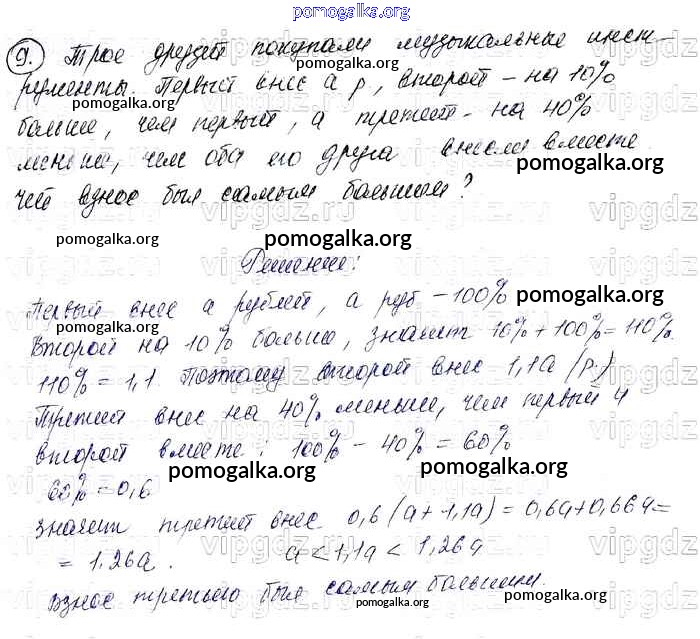 pomogalka.org
9. Трое друзей покупали музыкальные инст-
pomogalka.org
рументы. Первый внёс а р, второй - на 10%
pomogalka.org
больше, чем первый, а третий - на 40%
меньше, чем оба его друга внесли вместе
pomogalka.org
Чей взнос был самым большим?
vipgdz.ru
pomogalka.org pomogalka.org pomogalka.org
Решение:
vipgdz.ru
Первый внес а рублей, а руб - 100%
pomogalka.org pomogalka.org
Второй на 10% больше, значит 10% + 100% = 110%.
110% = 1,1. Поэтому второй внес 1,1а (р.)
vipgdz.ru
Третий внес на 40% меньше, чем первый и
второй вместе: 100% - 40% = 60%
pomogalka.org pomogalka.org
60% = 0,6
значит третий внес 0,6(а + 1,1а) = 0,6а + 0,66а =
= 1,26а. а < 1,1а < 1,26а
pomogalka.org
vipgdz.ru
Взнос третьего был самым большим.
pomogalka.org pomogalka.org